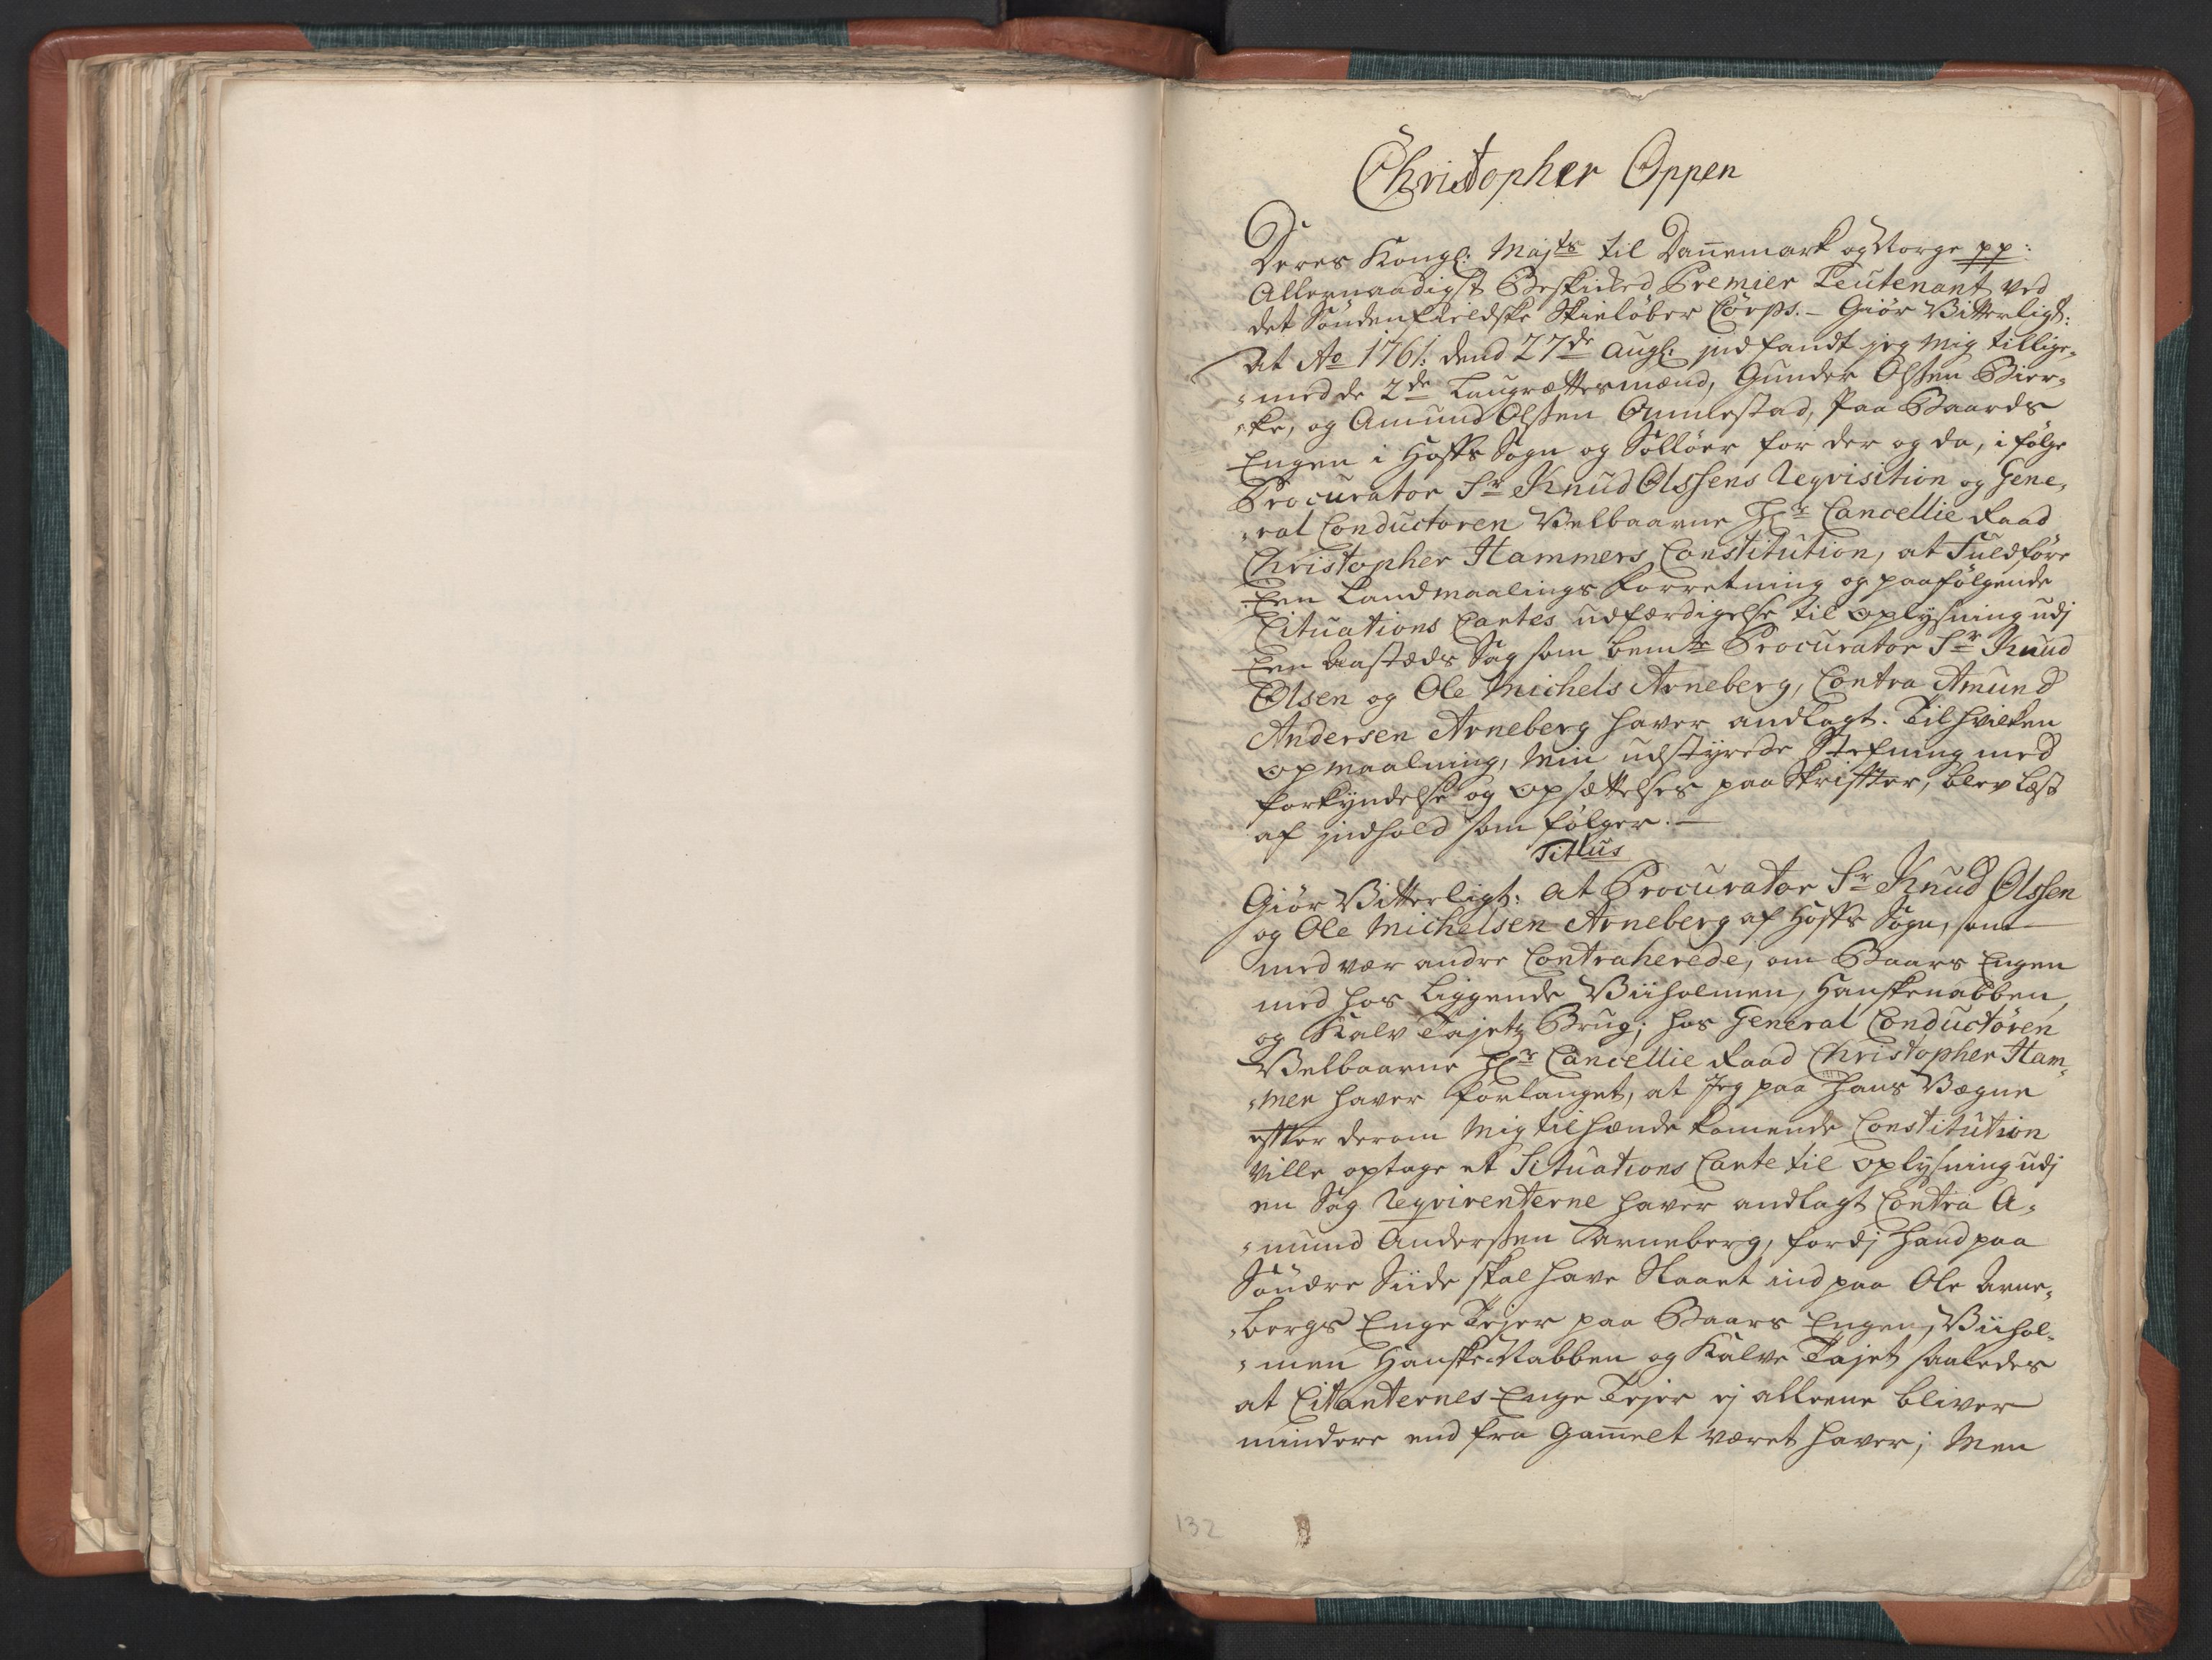 Christopher Oppen
Deres Kongl: Majts til Dannemark og Norge pp:
Allernaadigst Beskicked Premier Leutenant ved
det Söndenfieldske Skielöber Corps. – Giör Vitterligt:
At Ao 1761: dend 27de Augl: indfandt jeg mig tillige-
-med de 2de Laugrættesmænd, Gunder Olssen Bier-
-ke, og Amund Olssen Ommestad, paa Baards
Engen i Hoffs Sogn og Sollöer for der og da, i fölge
Procurator Sr Knud Olssens Reqvisition og Gene,
-ral Conductoren Velbaarne Hr Cancellie Raad
Christopher Hammers Constitution, at Fuldföre
Een Landmaalings Forretning og paafölgende
Cituations Cartes udfærdigelse til oplysning udj
Een Aastæds Sag som bemte Procurator Sr Knud
Olsen og Ole Michels Arneberg, Contra Amund
Andersen Arneberg haver andlagt. Til hvilken
opmaalning, min udstyrede Stefning med
forkyndelse og opsættelses paaskrifter, blev læst
af indhold som fölger. –
Titlus
Giör Vitterligt: at Procurator Sr Knud Olssen
og Ole Michelsen Arneberg af Hoffs Sogn, som
med vær andre Contraherede, om Baars Engen
med hos liggende Viiholmen, Hanskenabben,
og Kalv Tajetz Brug; hos General Conductören
Velbaarne Hr Cancellie Raad Christopher Ham-
-mer haver forlanget, at Jeg paa Hans Vægne
efter derom mig tilhænde komende Constitution
Ville optage et Situations Carte til oplysning udj
en Sag Reqvirenterne haver andlagt Contra A-
-mund Anderssen Arneberg, fordj hand paa
Söndre Siide skal have Slaaet ind paa Ole Arne-
-bergs Enge Tejer paa Baars Engen, Viihol-
-men Hanske Nabben og Kalve Tajet saaledes
at Citanternes Enge Tejer ej alleene bliver
mindere end fra Gammelt været haver; Men
132